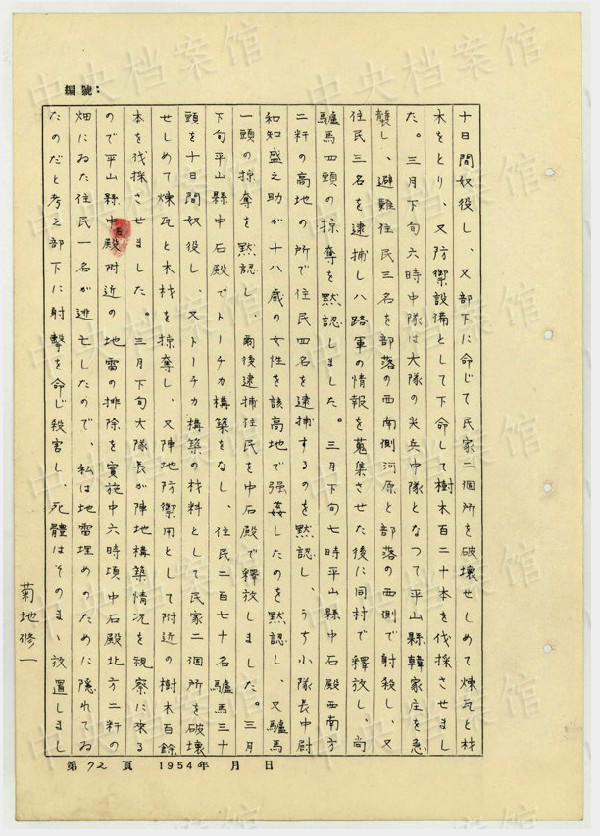 編號：
十日間奴役し、又部下に命じて民家二個所を破壊せしめて煉瓦と材
木をとり、又防禦設備として下命して樹木百二十本を伐採させまし
た。三月下旬六時中隊は大隊の尖兵中隊となつて平山縣韓家庄を急
襲し、避難住民三名を部落の西南側河原と部落の西側で射殺し、又
住民三名を逮捕し八路軍の情報を蒐集させた後に同村で釋放し、尚
驢馬四頭の掠奪を默認しました。三月下旬七時平山縣中石殿西南方
二粁の高地の所で住民四名を逮捕するのを默認し、うち小隊長中尉
和知盛之助が十八歳の女性を該高地で强姦したのを默認し、又驢馬
一頭の掠奪を默認し、爾後逮捕住民を中石殿で釋放しました。三月
下旬平山縣中石殿でトーチカ構築をなし、住民二百七十名驢馬三十
頭を十日間奴役し、又トーチカ構築の材料として民家二個所を破壊
せしめて煉瓦と木材を掠奪し、又陣地防禦用として附近の樹木百餘
本を伐採させました。三月下旬大隊長が陣地構築情况を視察に來る
ので平山縣中石殿附近の地雷の排除を實施中六時頃中石殿北方二粁の
畑にゐた住民一名が逃亡したので、私は地雷埋めのために隱れてゐ
たのだと考え部下に射擊を命じ殺害し、死體はそのまゝ放置しまし
菊地修一
第72頁 1954年 月 日
中央档案馆